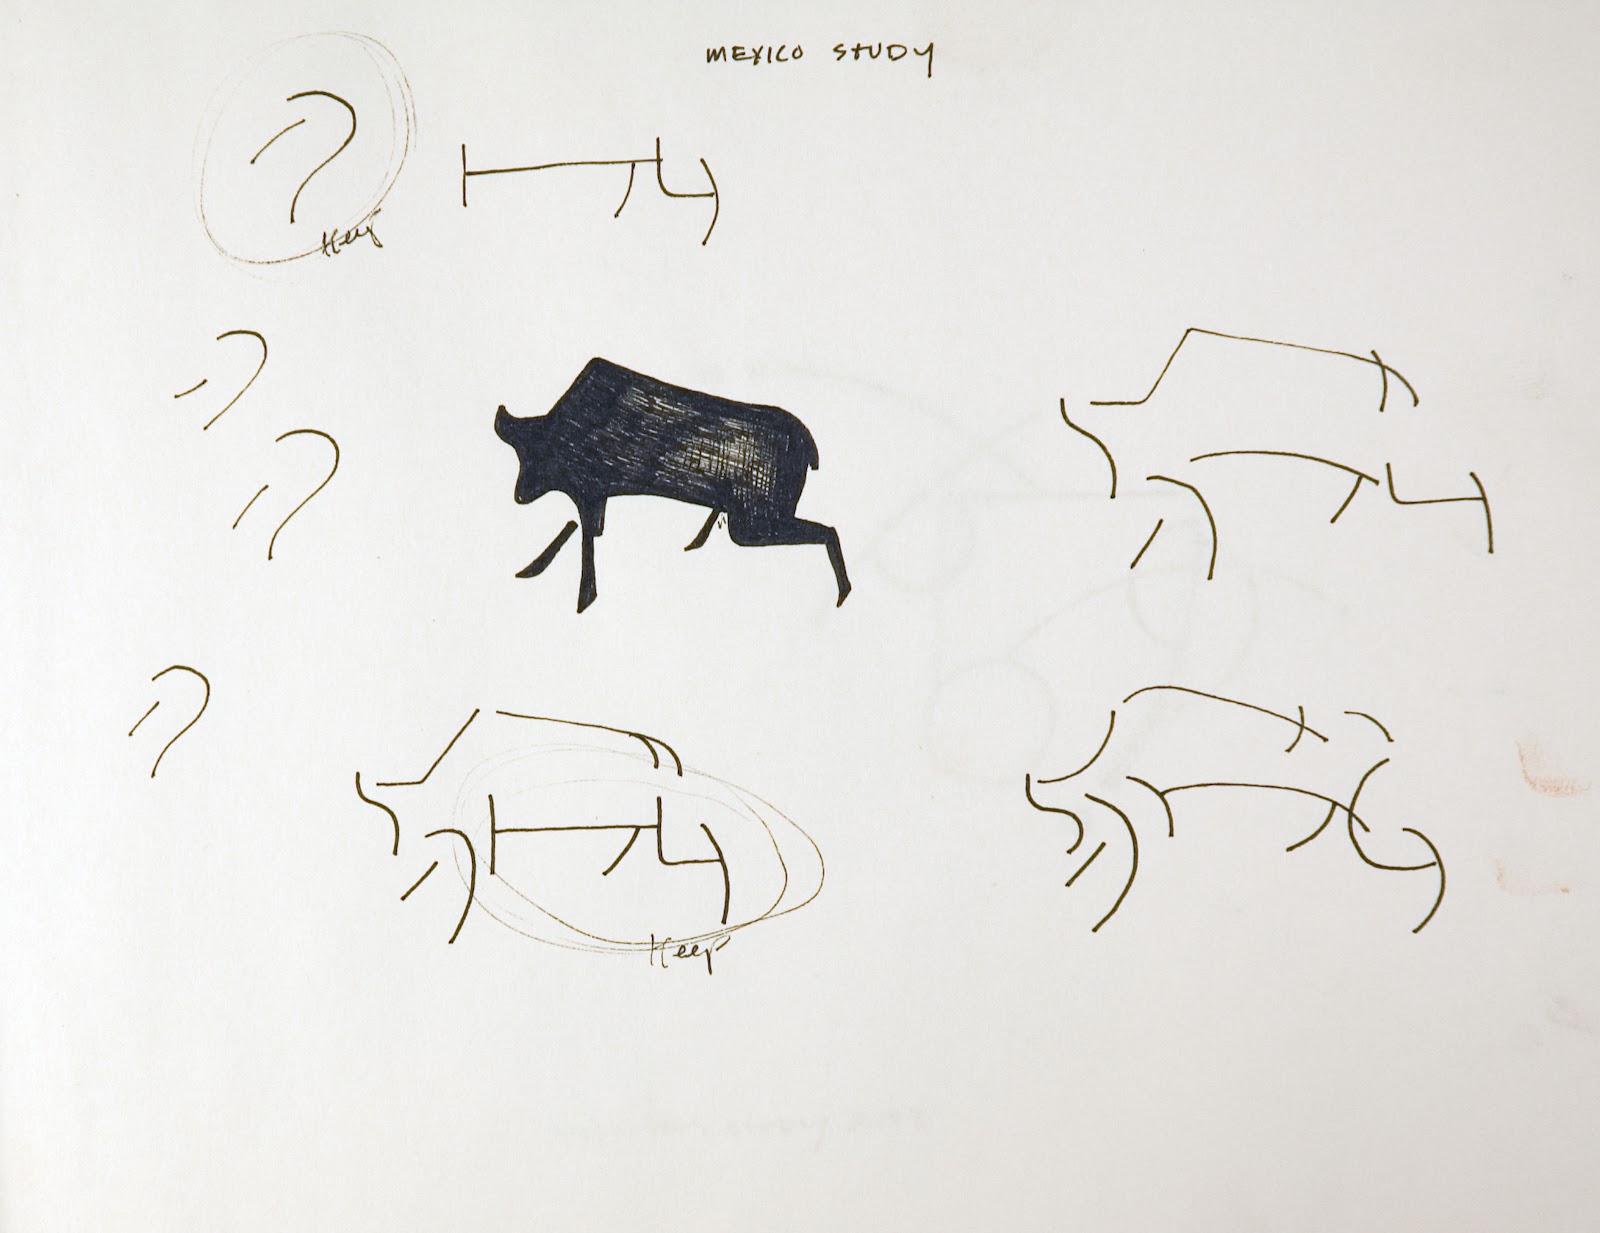 MEXICO STUDY
Keep
Keep